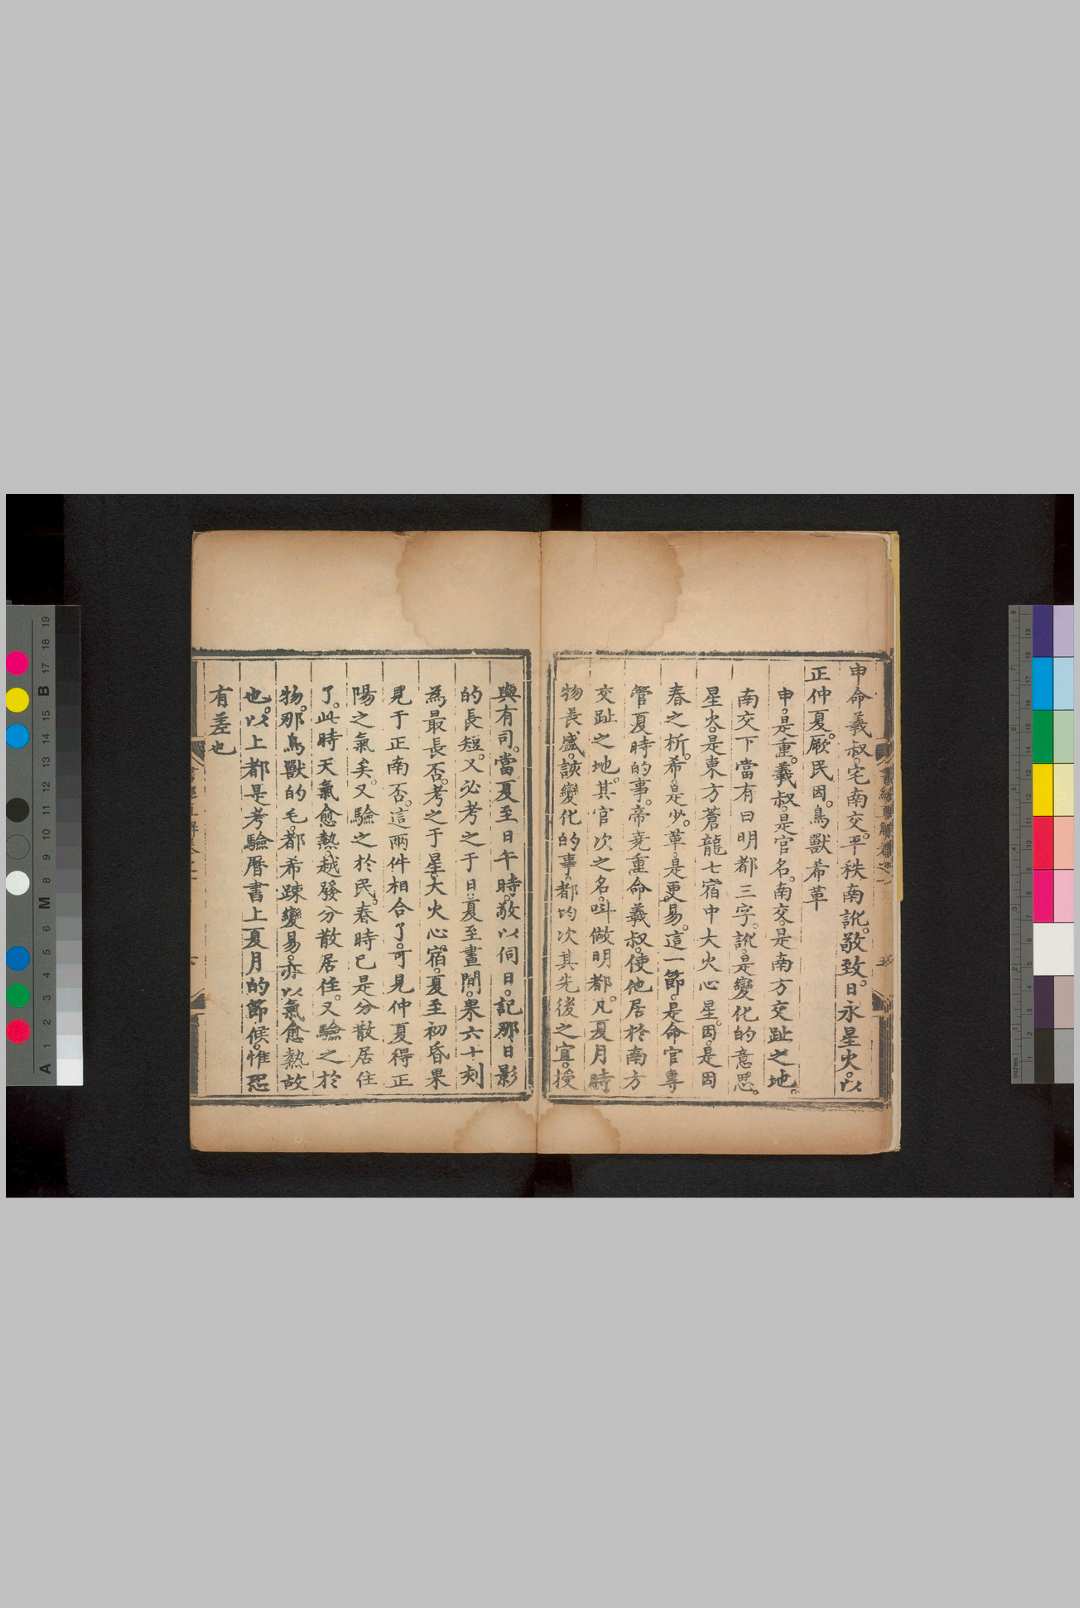 申命羲叔。宅南交。平秩南訛。敬致。日永星火。以
正仲夏。厥民因。鳥獸希革
申。是重。羲叔。是官名。南交。是南方交趾之地。
南交下當有曰明都三字。訛。是變化的意思。
星火。是東方蒼龍七宿中大火心星。因。是因
春之析。希。是少。革。是更易。這一節。是命官專
管夏時的事。帝堯重命羲叔。使他居於南方
交趾之地。其官次之名。叫做明都。凡夏月時
物長盛。該變化的事。都均次其先後之宜。授
與有司。當夏至日午時。敬以伺日。記那日影
的長短。又必考之于日。夏至晝間。果六十刻
為最長否。考之于星。大火心宿。夏至初昏果
見于正南否。這兩件相合了。可見仲夏得正
陽之氣矣。又驗之於民。春時已是分散居住
了。此時天氣愈熱。越發分散居住。又驗之於
物。那鳥獸的毛。都希踈變易。亦以氣愈熱故
也。以上都是考驗曆書上夏月的節候。惟恐
有差也